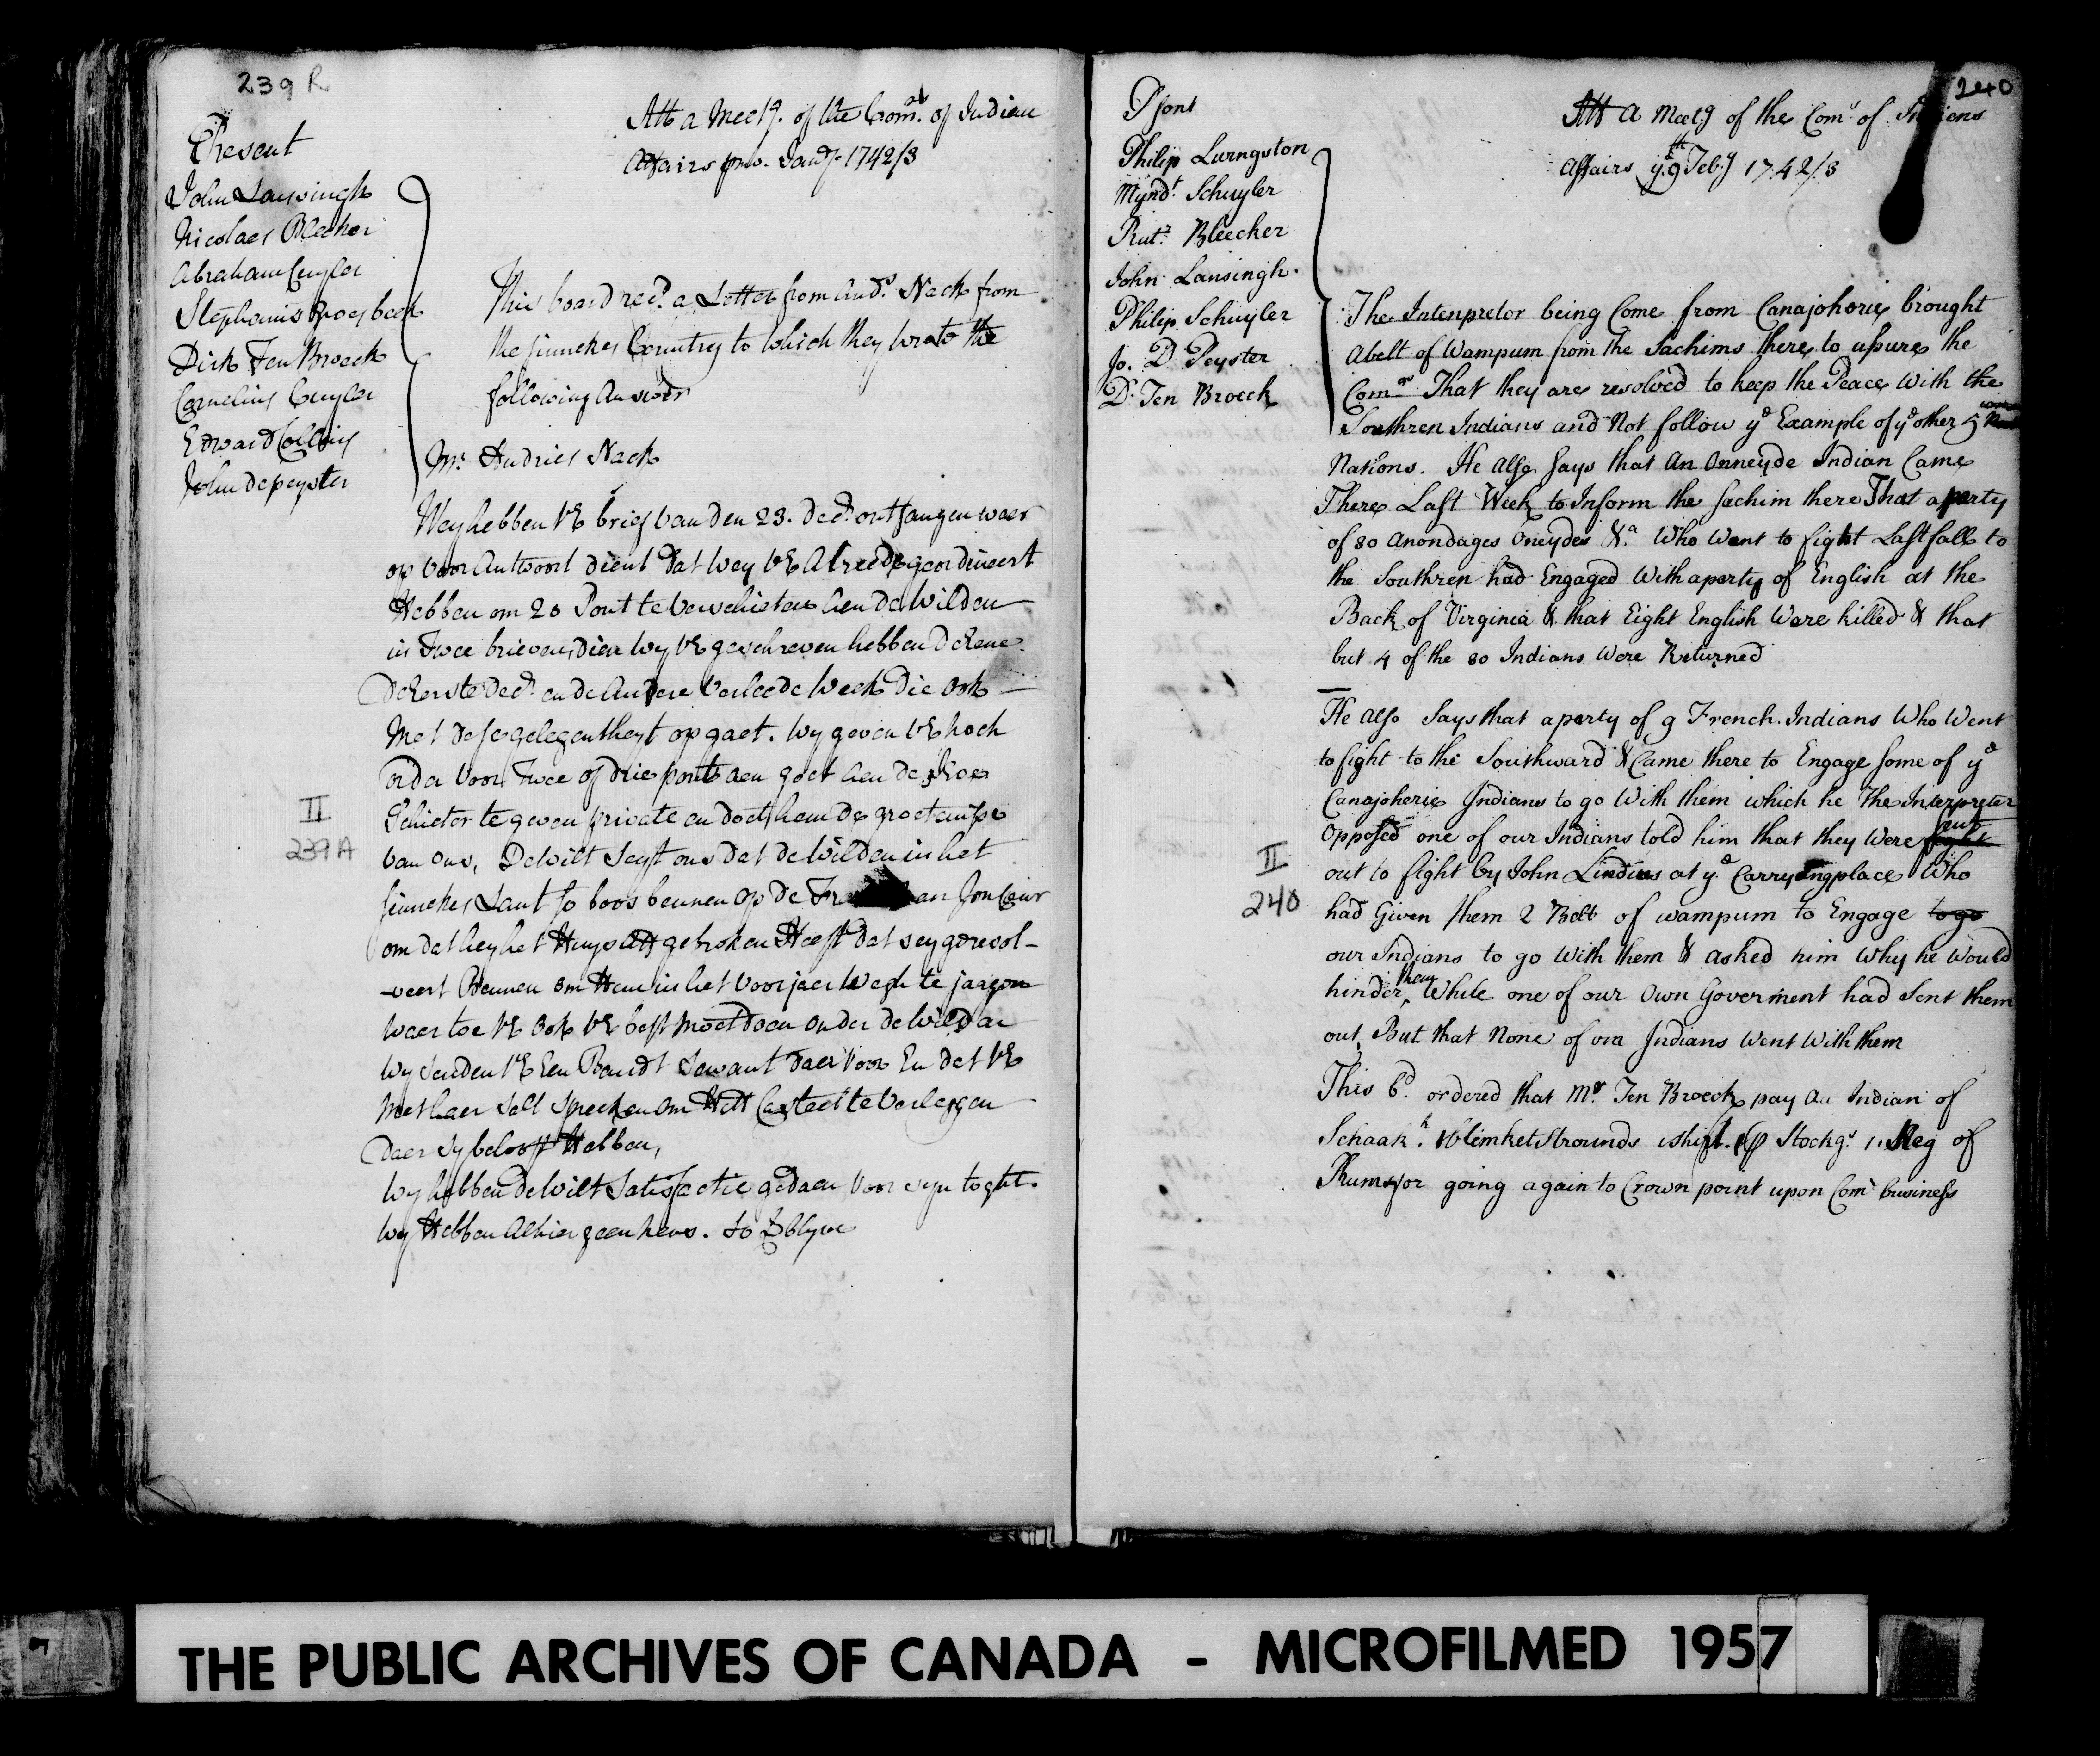 239 R
Present
John Lansingh
Nicolaes Bleeker
Abraham Cuyler
Stephanis Groesbeek
Dirk Ten Broeck
Cornelius Cuyler
Edward Collins
John Depeyster
Att a Meetg. of the Comrs. of Indian
Affairs primo. Jandy. 1742/3
This board recd. a Letter from Andrs. Nack from
the Sinnekes Country to which they wrote the
following answer
Mr. Andries Nack
Wey hebben UE brief van den 23. decr. ontfangen waer
op voor Antwoort dient dat wey UE Alreede geordineert
Hebben om 20 Pont te verschieten Aen de Wilden
in twee brieven, dien wy UE geschreven hebben de Eene
de Eerste decr. en de Andere verleede Week die ook
Met dese gelegentheyt op gaet. wy geven UE noch
order voor twee of drie ponts aen goet aen de
Schieter te geven private en doet hem de groetenisse
van ons, De wilt seyt ons dat de wilden in het
Sinnekes Lant so boos bennen op de an Jon Ceur
om dat hey het Huys Att gebroken Heeft dat sey geresol-
-veert Bennen om Hem in het voorjaer Wegh te jaagen
waer toe UE ook UE best moet doen onder de wilden
wy senden UE Een Bandt Sewant daer voor En dat UE
met haer sell spreeken om Hett Casteel te verleggen
daer sy belooft Hebben,
Wy hebben de Wilt Satisfactie gedaen voor syn toght.
wy Hebben Alhier geen news. so blyve
II
239A
240
Psent
Philip Livingston
Myndt. Schuyler
Rutr. Bleecker
John Lansingh.
Philip Schuyler
Jo. D Peyster
D. Ten Broeck
Att a Meetg of the Comrs of Indiens
Affairs ye. 9th Feb:y 1742/3
The Intenpretor being Come from Canajoharie brought
a belt of Wampum from the Sachims there to assure the
Comrs. That they are resolved to keep the Peace with the
Southren Indians and Not follow ye Example of ye other 5
Nations. He also says that an Onneyde Indian Came
There Last Week to Inform the Sachim there That a party
of 80 Anondages Oneydes &a. Who Went to fight Last fall to
the Southren had Engaged with a party of English at the
Back of Virginia & that Eight English Were killed & that
but 4 of the 80 Indians Were Returned
He also Says that a party of 9 French Indians Who Went
to fight to the Southward & Came there to Engage some of ye
Canajoherie Indians to go With them which he The Interpreter
opposed one of our Indians told him that they Were sent
out to fight by John Lindius at ye. Carrying place Who
had Given them 2 Belt of wampum to Engage to go
our Indians to go with them & asked him Why he Would
hinder them While one of our Own Goverment had Sent them
out, But that None of our Indians Went With them
This bd. ordered that Mr. Ten Broeck pay an Indian of
Schaakk. 1 blinket Strounds 1 shirt. 1 p Stockgs. 1 Keg of
Rum for going again to Crown point upon Comrs business
II
240
THE PUBLIC ARCHIVES OF CANADA - MICROFILMED 1957
7